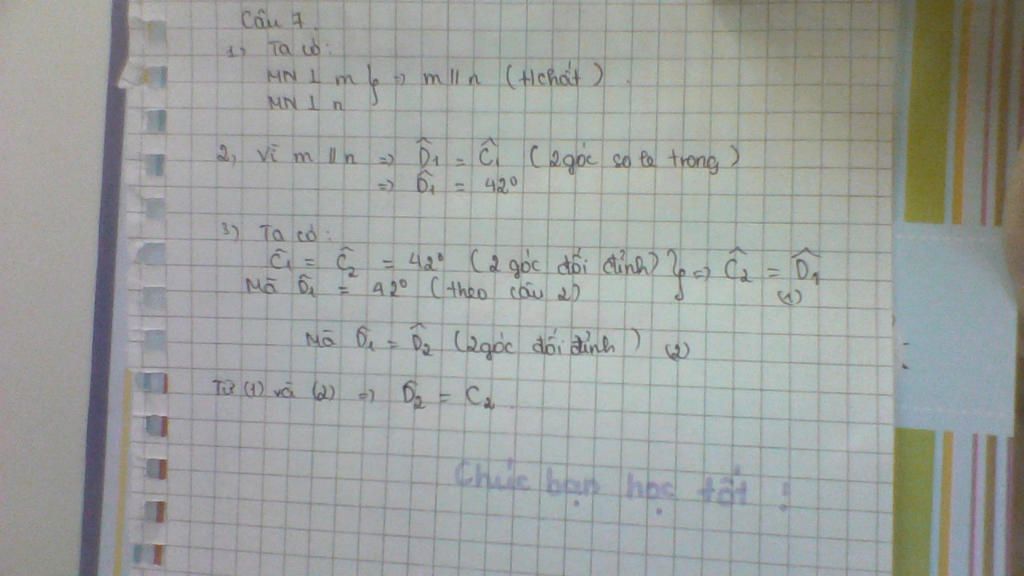 Câu 7.
1, Ta có:
MN ⊥ m } => m // n (t/chất).
MN ⊥ n
2, Vì m // n => D̂₁ = Ĉ₁ (2 góc so le trong)
=> D̂₁ = 42°
3, Ta có:
Ĉ₁ = Ĉ₂ = 42° (2 góc đối đỉnh) } => Ĉ₂ = D̂₁
Mà D̂₁ = 42° (theo câu 2) (1)
Mà D̂₁ = D̂₂ (2 góc đối đỉnh) (2)
Từ (1) và (2) => D̂₂ = C₂.
Chúc bạn học tốt !